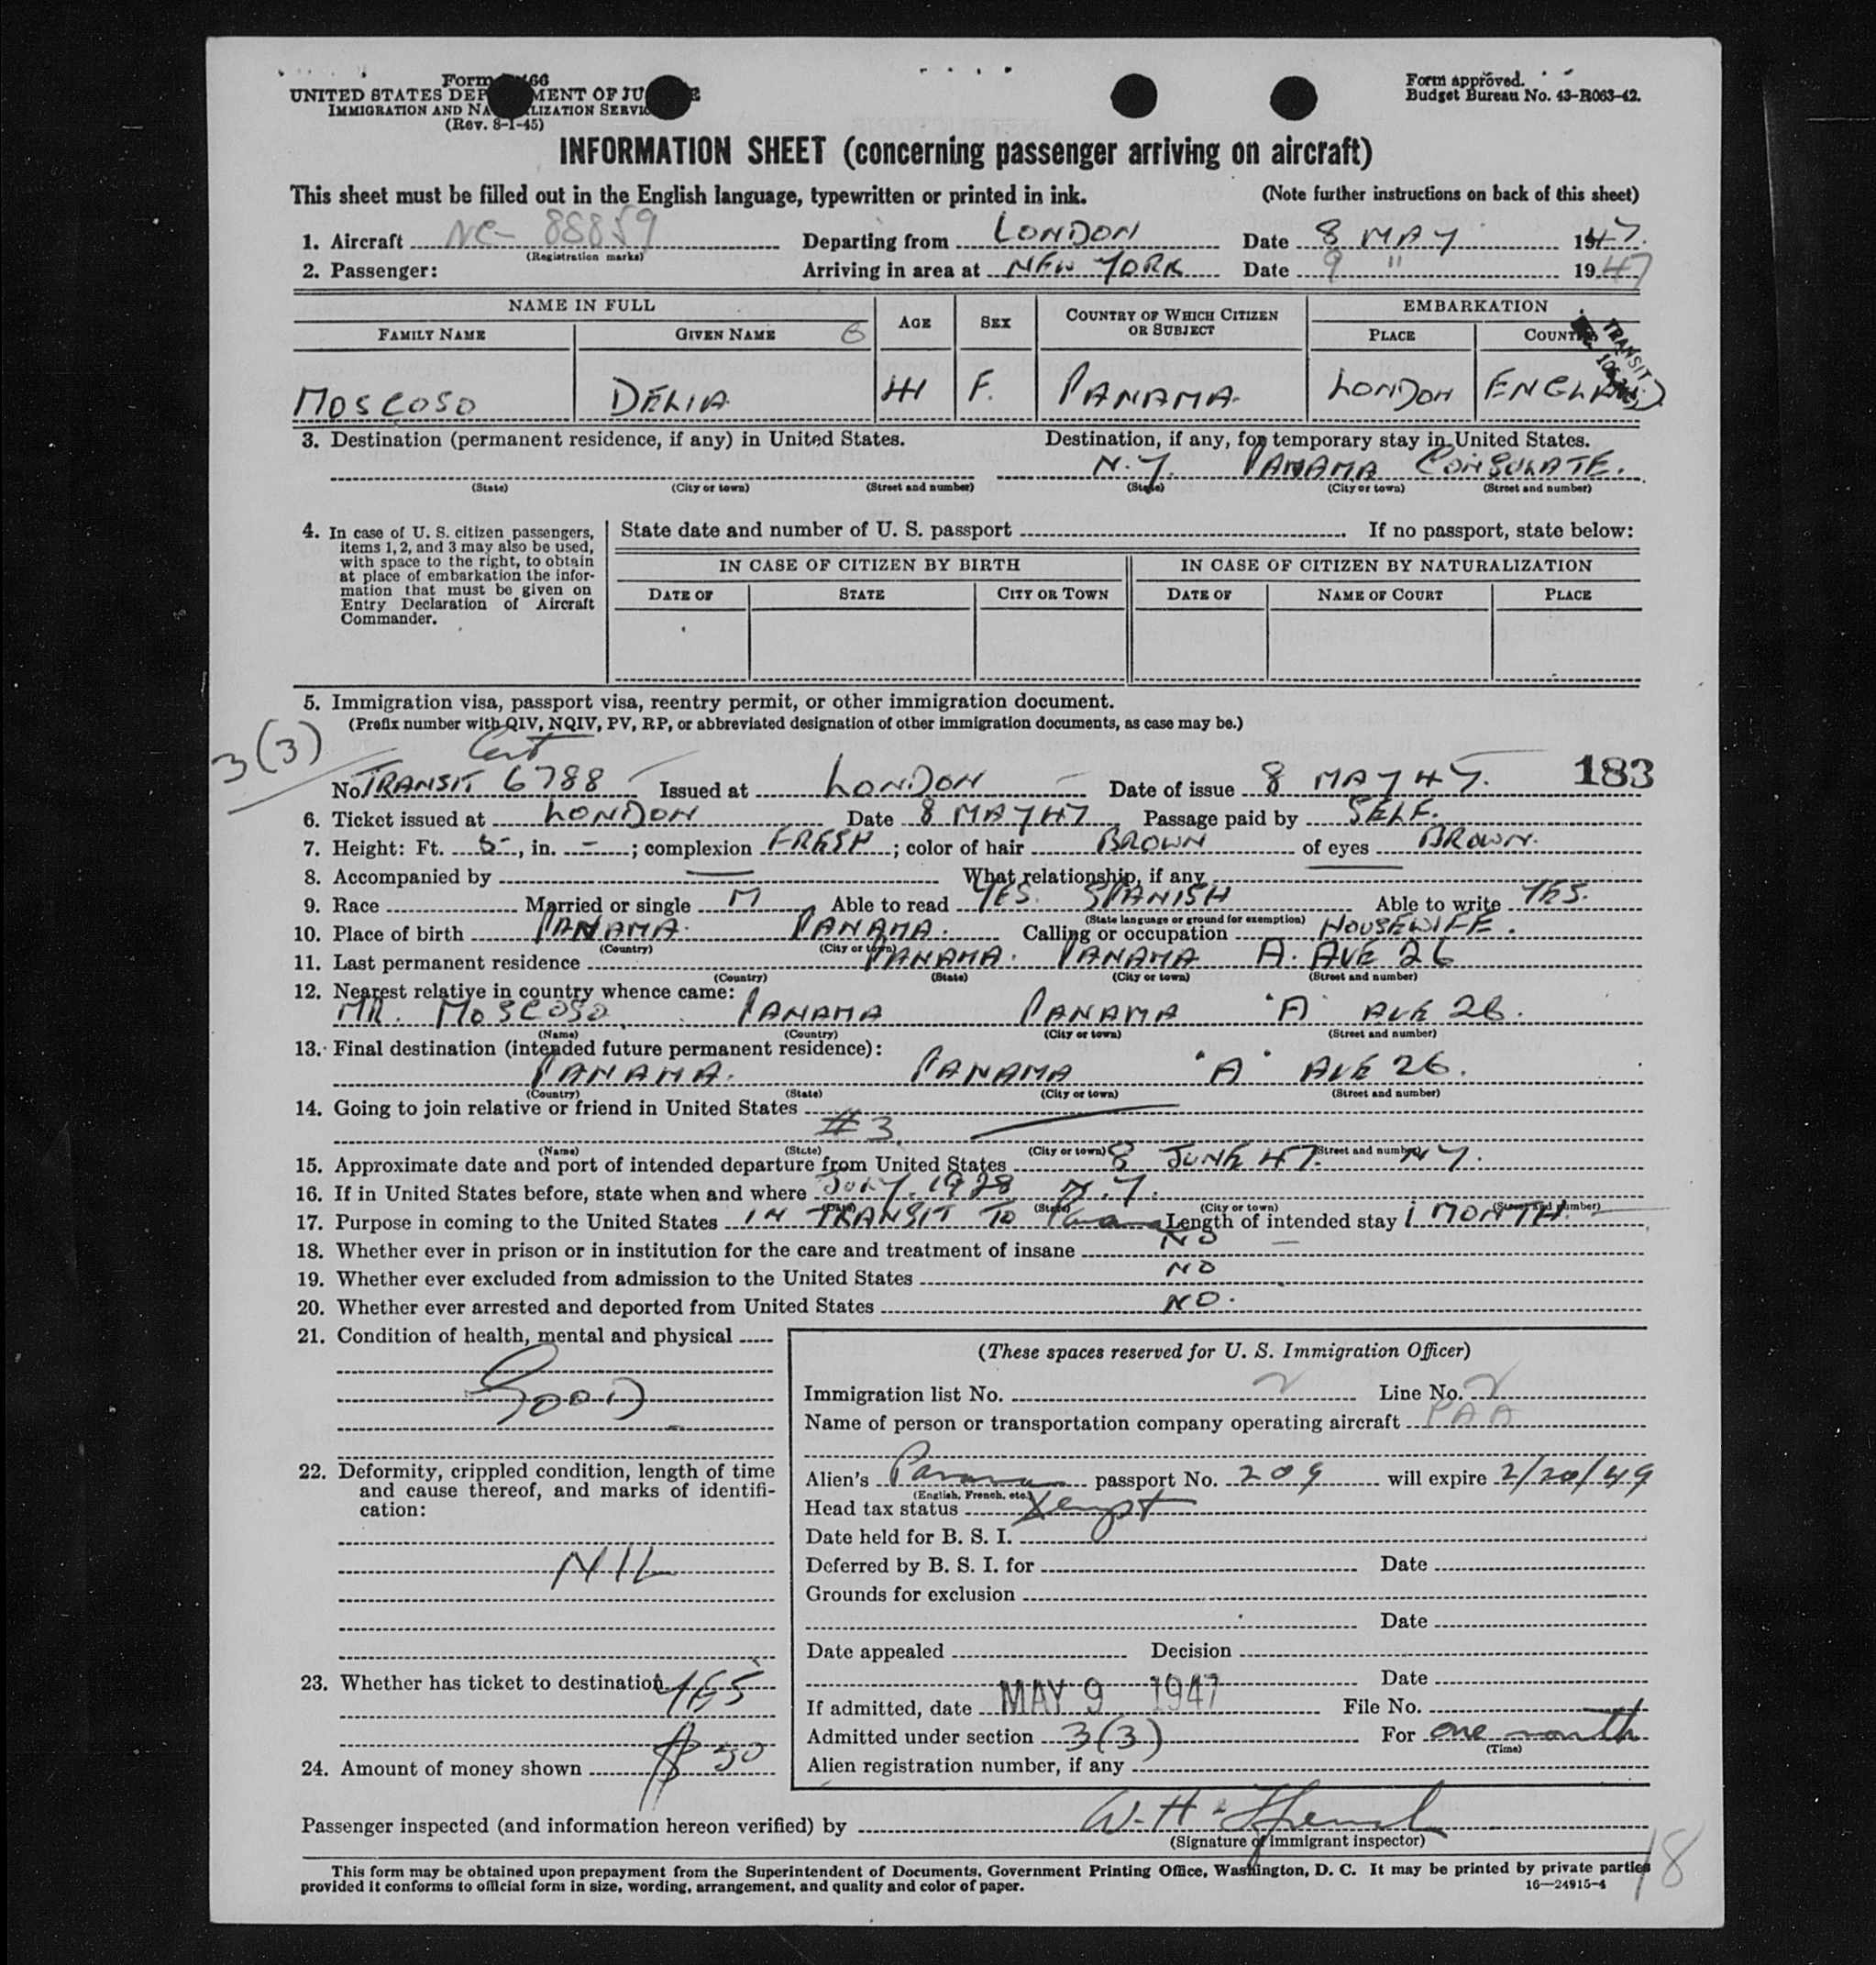 Form 466
UNITED STATES DEPARTMENT OF JUSTICE
IMMIGRATION AND NATURALIZATION SERVICE
(Rev. 8-1-45)
Form approved.
Budget Bureau No. 43-R063-42.
INFORMATION SHEET (concerning passenger arriving on aircraft)
This sheet must be filled out in the English language, typewritten or printed in ink. (Note further instructions on back of this sheet)
1. Aircraft NC- 88859 Departing from LONDON Date 8 MAY 1947.
(Registration marks)
2. Passenger: Arriving in area at NEW YORK Date 9 " 1947
NAME IN FULL AGE SEX COUNTRY OF WHICH CITIZEN OR SUBJECT EMBARKATION
FAMILY NAME GIVEN NAME PLACE COUNTRY
TRANSIT
MOSCOSO DELIA 41 F. PANAMA. LONDON ENGLAND
3. Destination (permanent residence, if any) in United States. Destination, if any, for temporary stay in United States.
N.Y. PANAMA CONSULATE.
(State) (City or town) (Street and number) (State) (City or town) (Street and number)
4. In case of U. S. citizen passengers, items 1, 2, and 3 may also be used, with space to the right, to obtain at place of embarkation the information that must be given on Entry Declaration of Aircraft Commander.
State date and number of U. S. passport If no passport, state below:
IN CASE OF CITIZEN BY BIRTH IN CASE OF CITIZEN BY NATURALIZATION
DATE OF STATE CITY OR TOWN DATE OF NAME OF COURT PLACE
5. Immigration visa, passport visa, reentry permit, or other immigration document.
(Prefix number with QIV, NQIV, PV, RP, or abbreviated designation of other immigration documents, as case may be.)
3(3)
Cert
No. TRANSIT 6788 Issued at LONDON Date of issue 8 MAY 47. 183
6. Ticket issued at LONDON Date 8 MAY 47 Passage paid by SELF.
7. Height: Ft. 5-, in. -; complexion FRESH; color of hair BROWN of eyes BROWN.
8. Accompanied by — What relationship, if any —
9. Race Married or single M Able to read YES. SPANISH Able to write YES.
(State language or ground for exemption)
10. Place of birth PANAMA. PANAMA. Calling or occupation HOUSEWIFE.
(Country) (City or town)
11. Last permanent residence PANAMA. PANAMA A. AVE 26
(Country) (State) (City or town) (Street and number)
12. Nearest relative in country whence came:
MR. MOSCOSO PANAMA PANAMA "A" AVE 26.
(Name) (Country) (City or town) (Street and number)
13. Final destination (intended future permanent residence):
PANAMA. PANAMA "A" AVE 26.
(Country) (State) (City or town) (Street and number)
14. Going to join relative or friend in United States
#3
(Name) (State) (City or town) (Street and number)
15. Approximate date and port of intended departure from United States 8 JUNE 47. NY.
16. If in United States before, state when and where JULY. 1928 N.Y.
(Date) (State) (City or town) (Street and number)
17. Purpose in coming to the United States IN TRANSIT TO Panama Length of intended stay 1 MONTH.
18. Whether ever in prison or in institution for the care and treatment of insane NO
19. Whether ever excluded from admission to the United States NO
20. Whether ever arrested and deported from United States NO.
21. Condition of health, mental and physical
GOOD
22. Deformity, crippled condition, length of time and cause thereof, and marks of identification:
NIL
23. Whether has ticket to destination YES
24. Amount of money shown $ 50
(These spaces reserved for U. S. Immigration Officer)
Immigration list No. 2 Line No. 2
Name of person or transportation company operating aircraft PAA
Alien's Panama passport No. 209 will expire 2/20/49
(English, French, etc.)
Head tax status Xempt
Date held for B. S. I.
Deferred by B. S. I. for Date
Grounds for exclusion
Date
Date appealed Decision
Date
If admitted, date MAY 9 1947 File No.
Admitted under section 3(3) For one month
(Time)
Alien registration number, if any
Passenger inspected (and information hereon verified) by W. H.
(Signature of immigrant inspector)
18
This form may be obtained upon prepayment from the Superintendent of Documents, Government Printing Office, Washington, D. C. It may be printed by private parties
provided it conforms to official form in size, wording, arrangement, and quality and color of paper. 16—24915-4